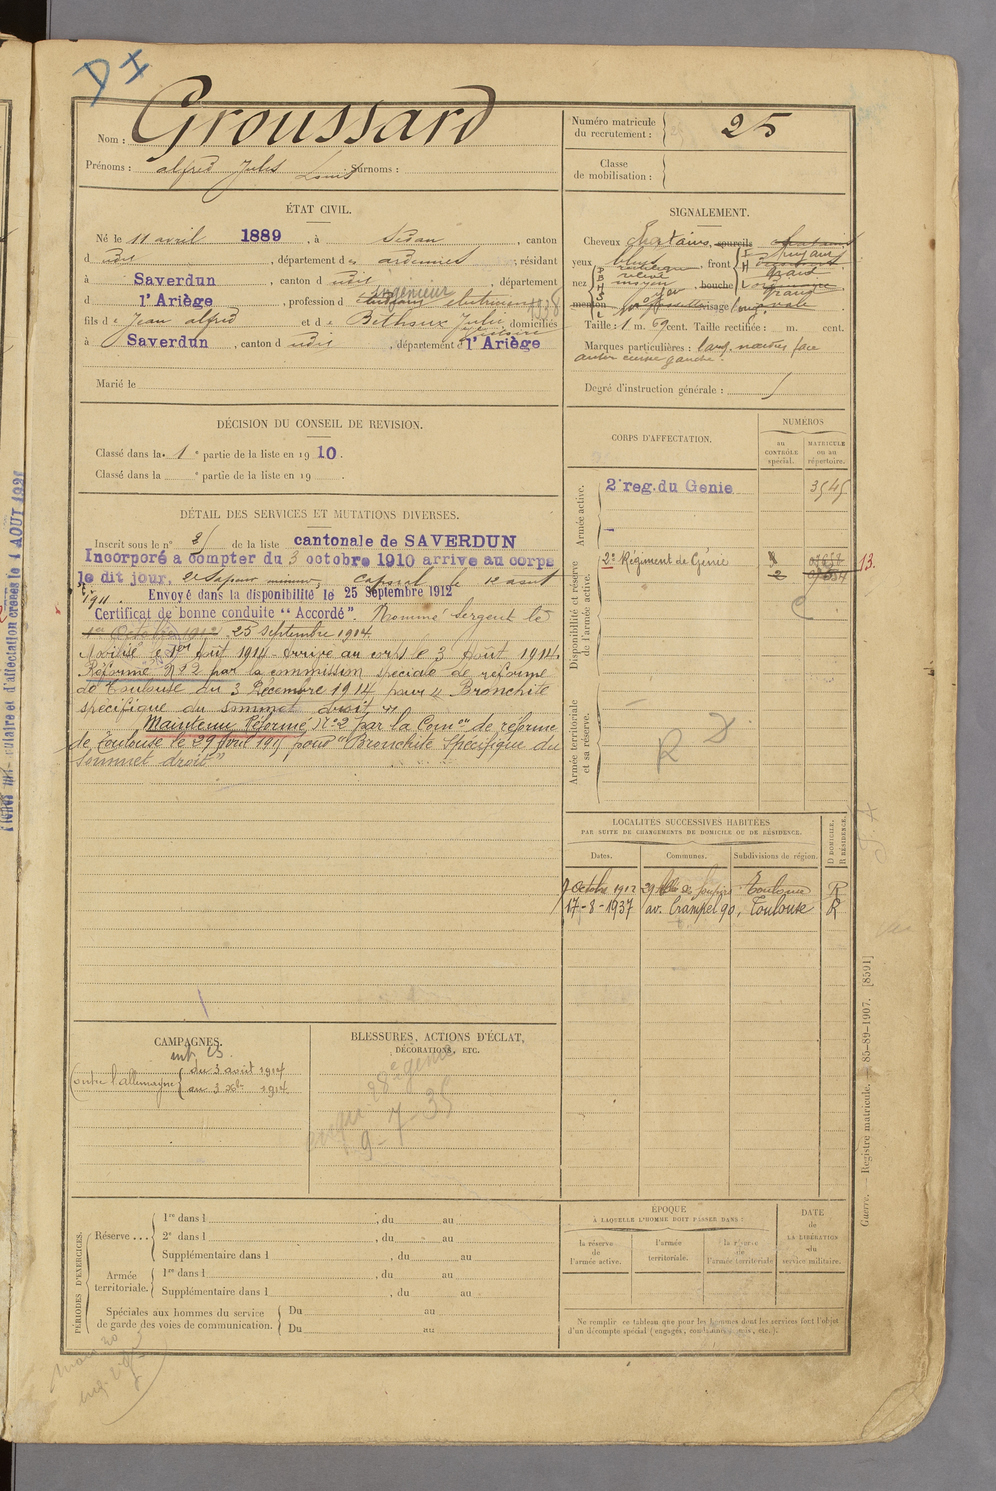 D I
Nom : Groussard
Prénoms : alfred Jules Louis Surnoms :
Numéro matricule du recrutement : 25
Classe de mobilisation :
ÉTAT CIVIL.
Né le 11 avril 1889, à Sedan, canton
d udit, département des ardennes, résidant
à Saverdun, canton d udit, département
d l'Ariège, profession d ingénieur électricien
fils de Jean alfred et de Bethaux Julie Victoire domiciliés
à Saverdun, canton d udit, département d l'Ariège
Marié le
SIGNALEMENT.
Cheveux chatains, sourcils chatains
yeux bleus, front fuyant
nez moyen, bouche
menton visage ovale
Taille : 1 m. 69 cent. Taille rectifiée : m. cent.
Marques particulières :
cuisse gauche.
Degré d'instruction générale :
DÉCISION DU CONSEIL DE REVISION.
Classé dans la 1e partie de la liste en 1910.
Classé dans la e partie de la liste en 19 .
DÉTAIL DES SERVICES ET MUTATIONS DIVERSES.
Inscrit sous le n° 25 de la liste cantonale de SAVERDUN
Incorporé a compter du 3 octobre 1910 arrive au corps
le dit jour, et Sapeur mineur, Caporal le 12 aout
1911. Envoyé dans la disponibilité le 25 Septembre 1912
Certificat de bonne conduite "Accordé". Nommé Sergent le
1er Octobre 1912 25 Septembre 1914
Mobilisé le 1er Août 1914 - Arrivé au corps le 3 Août 1914
Réformé N° 2 par la commission spéciale de réforme
de Toulouse du 3 Décembre 1914 pour " Bronchite
spécifique du sommet droit "
Maintenu Réformé N°2 par la Comon de réforme
de Toulouse le 29 Avril 1915 pour "Bronchite Spécifique du
Sommet droit"
CORPS D'AFFECTATION.
NUMÉROS
au CONTRÔLE spécial.
MATRICULE ou au répertoire.
Armée active.
2e reg. du Genie 3545
Disponibilité et réserve de l'armée active.
2e Régiment de Génie
13.
Armée territoriale et sa réserve.
R D
LOCALITÉS SUCCESSIVES HABITÉES
PAR SUITE DE CHANGEMENTS DE DOMICILE OU DE RÉSIDENCE.
Dates. Communes. Subdivisions de région. D DOMICILE. R RÉSIDENCE.
7 Octobre 1912 29 des Soupirs Toulouse R
17-8-1937 av. Crampel 90, Toulouse R
CAMPAGNES.
int. CS.
Contre l'allemagne
du 3 août 1914
au 3 Xbre 1914.
BLESSURES, ACTIONS D'ÉCLAT,
DÉCORATIONS, ETC.
28e génie
9-7-35
PÉRIODES D'EXERCICES.
Réserve ...
1re dans l , du au
2e dans l , du au
Supplémentaire dans l , du au
Armée territoriale.
1re dans l , du au
Supplémentaire dans l , du au
Spéciales aux hommes du service de garde des voies de communication.
Du au
Du au
ÉPOQUE
À LAQUELLE L'HOMME DOIT PASSER DANS :
la réserve de l'armée active.
l'armée territoriale.
la réserve de l'armée territoriale
DATE de LA LIBÉRATION du service militaire.
Ne remplir ce tableau que pour les hommes dont les services font l'objet
d'un décompte spécial (engagés, condamnés, omis, etc.).
Guerre. — Registre matricule. — 85-89-1907. [8591]